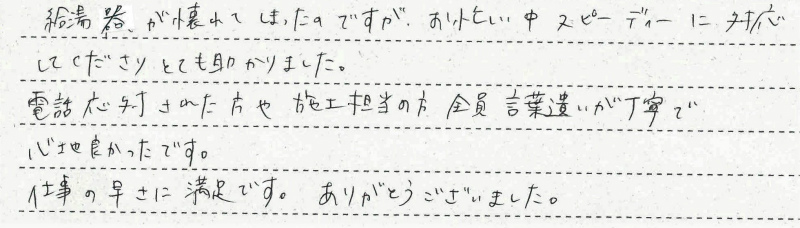 給湯器、が懐れてしまったのですが、お忙しい中スピーディーに対応
してくださりとても助かりました。
電話応対された方や施工担当の方全員言葉遣いが丁寧で
心地良かったです。
仕事の早さに満足です。ありがとうございました。